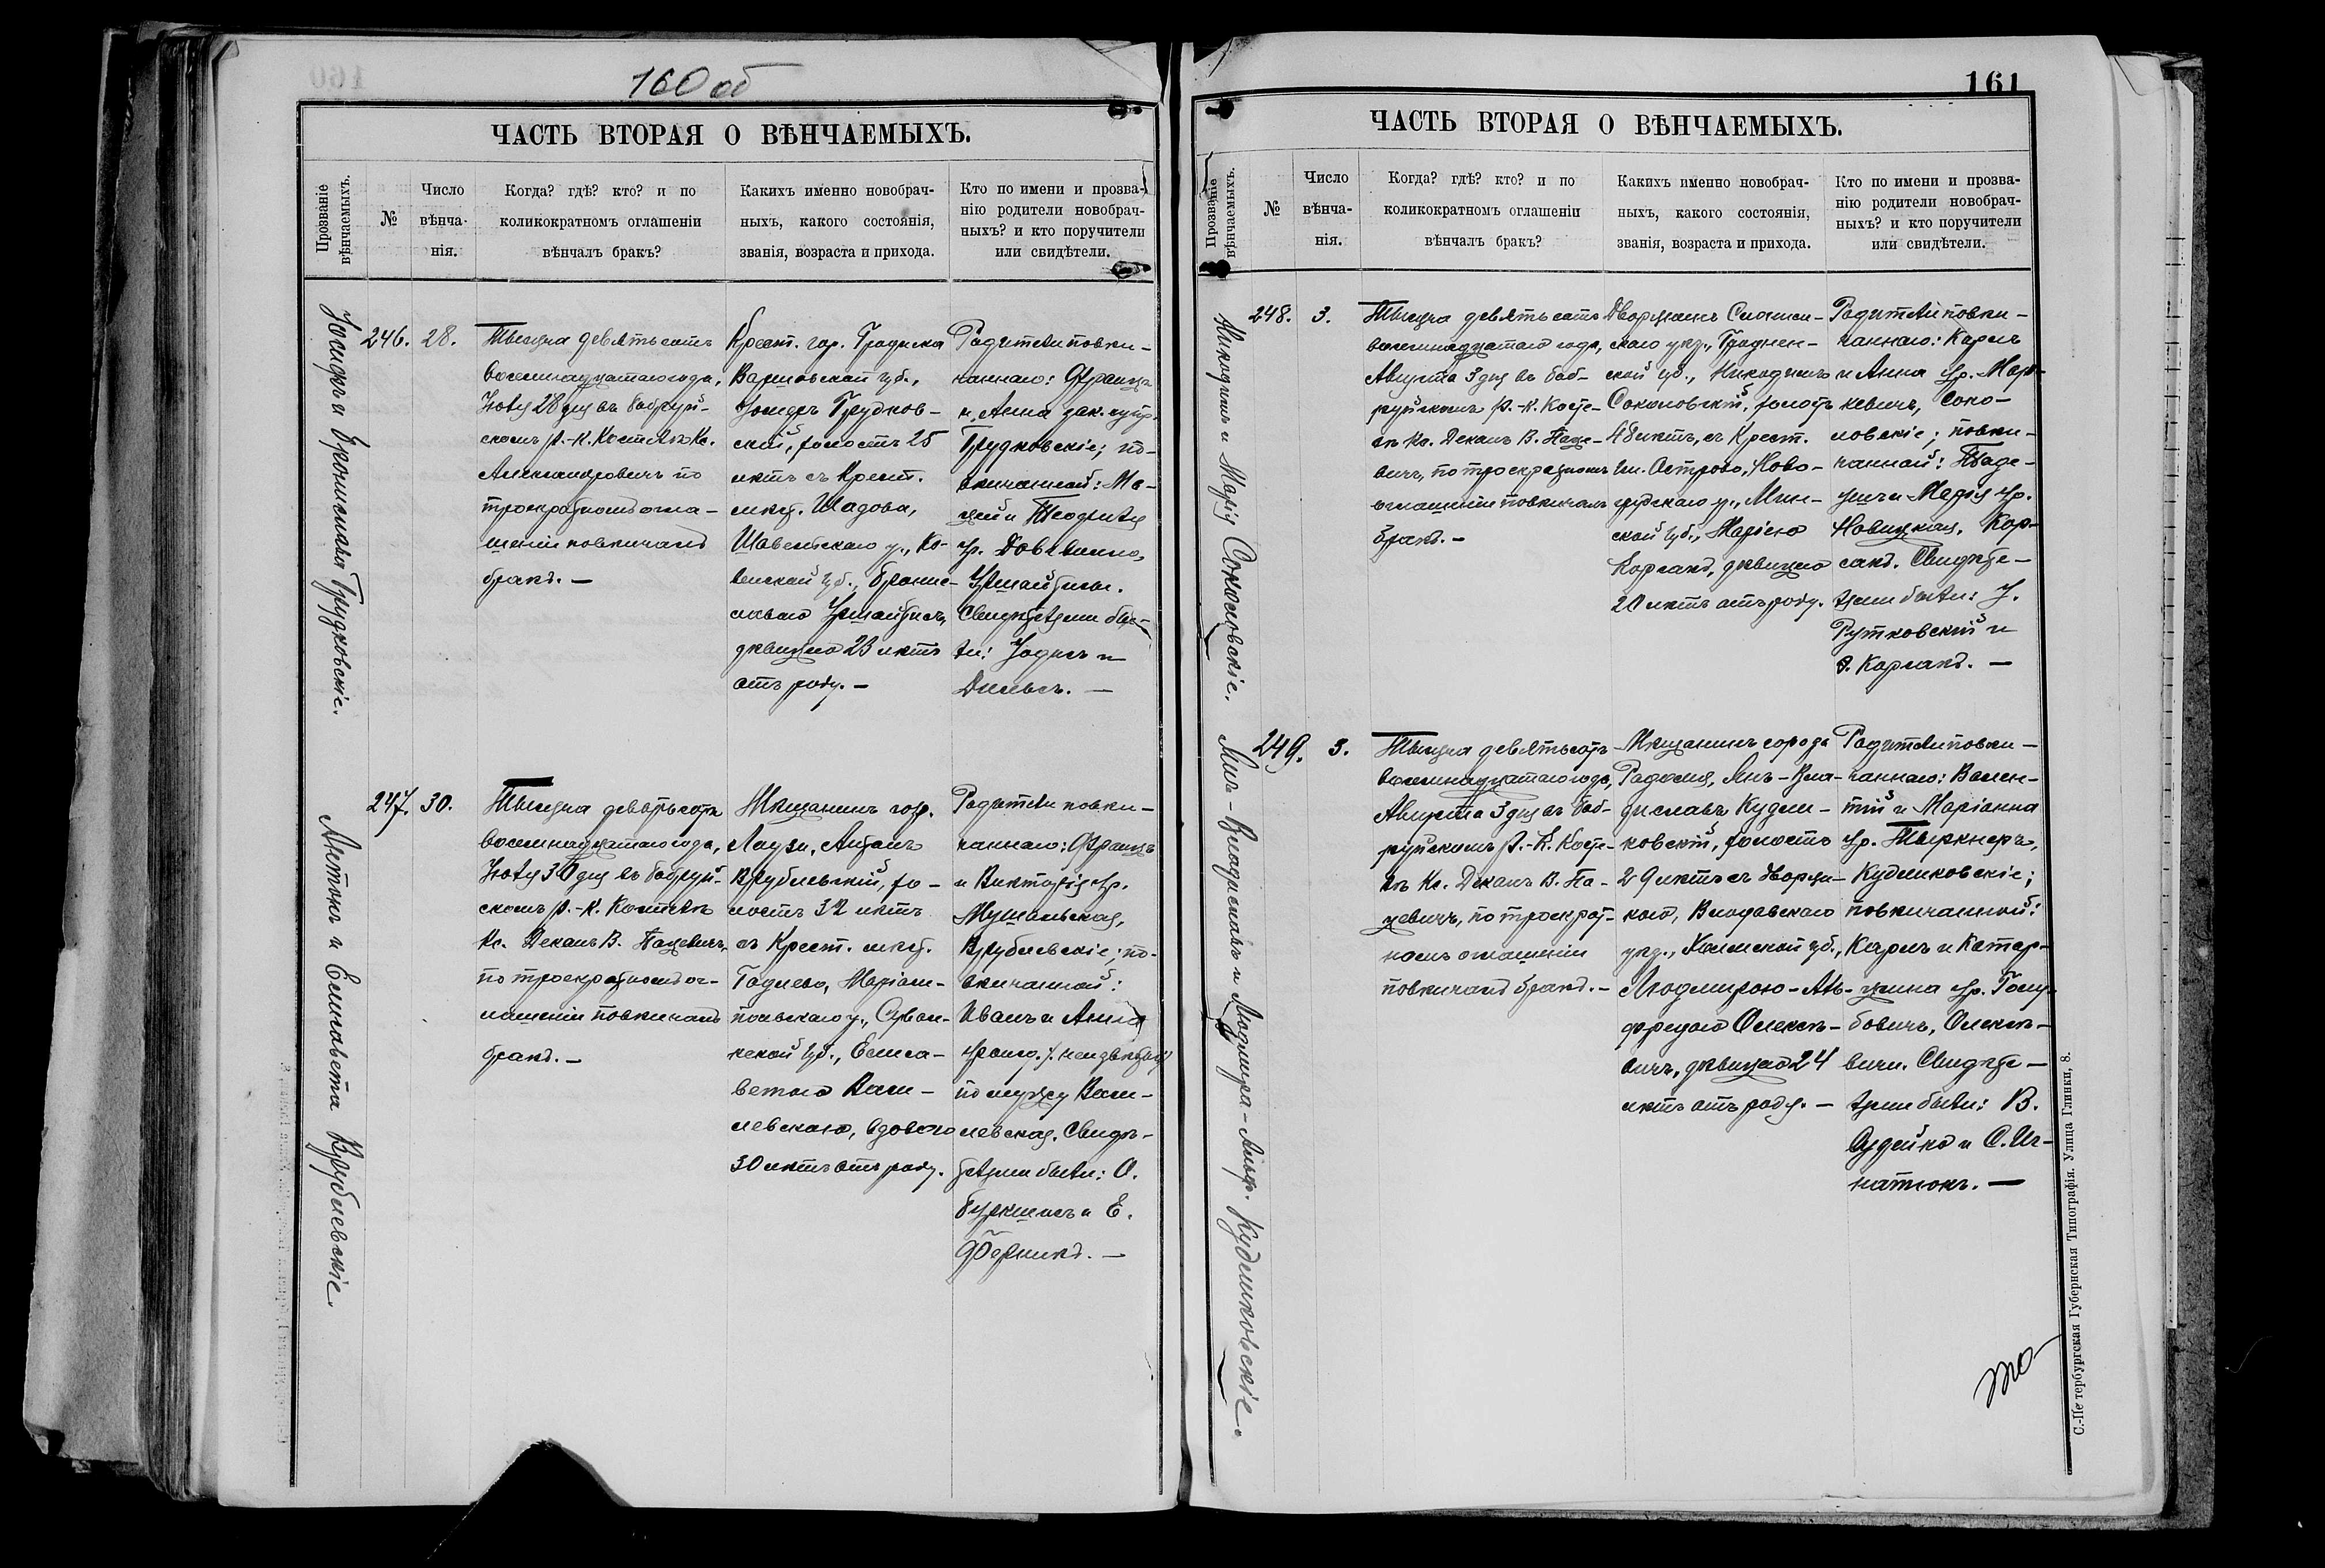 160 об
ЧАСТЬ ВТОРАЯ О ВѢНЧАЕМЫХЪ.
Прозваніе
вѣнчаемыхъ.
№
Число
вѣнча-
нія.
Когда? гдѣ? кто? и по
коликократномъ оглашеніи
вѣнчалъ бракъ?
Какихъ именно новобрач-
ныхъ, какого состоянія,
званія, возраста и прихода.
Кто по имени и прозва-
нію родители новобрач-
ныхъ? и кто поручители
или свидѣтели.
Іосифъ и Брониславы Грудковскіе.
246.
28.
Тысяча девятьсотъ
восемнадцатаго года,
Іюля 28 дня въ Бобруй-
скомъ р.-к. Костелѣ Кс.
Александровичъ по
троекратномъ огла-
шеніи повѣнчалъ
бракъ. —
Крест. гор. Гродиска
Варшавской губ.,
Іосифъ Грудков-
скій, холостъ 25
лѣтъ съ Крест.
мѣст. Шадова,
Шавельскаго у., Ко-
венской губ., Бронис-
лавою
дѣвицею 23 лѣтъ
отъ роду. —
Родители повѣн-
чаннаго: Францъ
и Анна зак. супр.
Грудковскіе; по-
вѣнчанной: Ма-
цей и Теофиля
ур. Довалинно,
Свидѣтелями бы-
ли: Іодисъ и
—
Антонъ и Елисавета Врублевскіе.
247.
30.
Тысяча девятьсотъ
восемнадцатаго года,
Іюля 30 дня въ Бобруй-
скомъ р.-к. Костелѣ
Кс. Деканъ В. Пацевичъ,
по троекратномъ ог-
лашеніи повѣнчалъ
бракъ. —
Мѣщанинъ гор.
Антонъ
Врублевскій, хо-
лостъ 32 лѣтъ
съ Крест. мѣст.
Годлево, Маріам-
польскаго у., Сувал-
кской губ., Елиса-
ветою Васи-
левскою, вдовою
30 лѣтъ отъ роду.
Родители повѣн-
чаннаго: Францъ
и Викторія ур.
Мушальская,
Врублевскіе; по-
вѣнчанной:
Иванъ и Анна
по мужу Васи-
левская. Свидѣ-
телями были: О.
Буркшасъ и Е.
161
ЧАСТЬ ВТОРАЯ О ВѢНЧАЕМЫХЪ.
Прозваніе
вѣнчаемыхъ.
№
Число
вѣнча-
нія.
Когда? гдѣ? кто? и по
коликократномъ оглашеніи
вѣнчалъ бракъ?
Какихъ именно новобрач-
ныхъ, какого состоянія,
званія, возраста и прихода.
Кто по имени и прозва-
нію родители новобрач-
ныхъ? и кто поручители
или свидѣтели.
Никодимъ и Марія Соколовскіе.
248.
3.
Тысяча девятьсотъ
восемнадцатаго года,
Августа 3 дня въ Боб-
руйскомъ р.-к. Косте-
лѣ Кс. Деканъ В. Паце-
вичъ, по троекратномъ
оглашеніи повѣнчалъ
бракъ. —
Дворянинъ Слоним-
скаго уѣз., Гроднен-
ской губ., Никодимъ
Соколовскій, холостъ
лѣтъ, съ Крест.
им. Острово, Ново-
грудскаго у., Мин-
ской губ., Маріею
Корсакъ, дѣвицею
20 лѣтъ отъ роду.
Родители повѣн-
чаннаго: Карлъ
и Анна ур. Марц-
кевичъ, Соко-
ловскіе; повѣн-
чанной: Тааде-
ушъ и Марія ур.
Новицкая, Кор-
сакъ. Свидѣте-
лями были: І.
Рутковскій и
З. Корсакъ. —
Янъ-Владиславъ и Людмира-Альф. Кудликовскіе.
249.
3.
Тысяча девятьсотъ
восемнадцатаго года,
Августа 3 дня въ Боб-
руйскомъ р.-к. Косте-
лѣ Кс. Деканъ В. Па-
цевичъ, по троекрат-
номъ оглашеніи
повѣнчалъ бракъ. —
Мѣщанинъ города
Радомя, Янъ-Вла-
диславъ Кудли-
ковскій, холостъ
29 лѣтъ съ Дворян-
кою, Влодавскаго
уѣз., Холмской губ.,
Людмирою-Аль-
фредою Олексѣ-
вичъ, дѣвицею 24
лѣтъ отъ роду. —
Родители повѣн-
чаннаго: Вален-
тій и Маріанна
ур. Тыркнеръ,
Кудликовскіе;
повѣнчанной:
Карлъ и Катар-
жина ур. Голу-
бовичъ, Олексѣ-
вичи. Свидѣте-
лями были: В.
Судейко и С. Иг-
натюкъ. —
С.-Петербургская Губернская Типографія. Улица Глинки, 8.